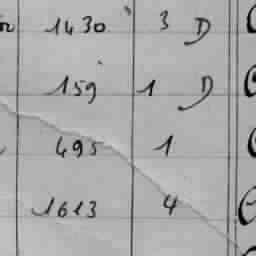 1430 3 D
159 1 D
495 1
1613 4